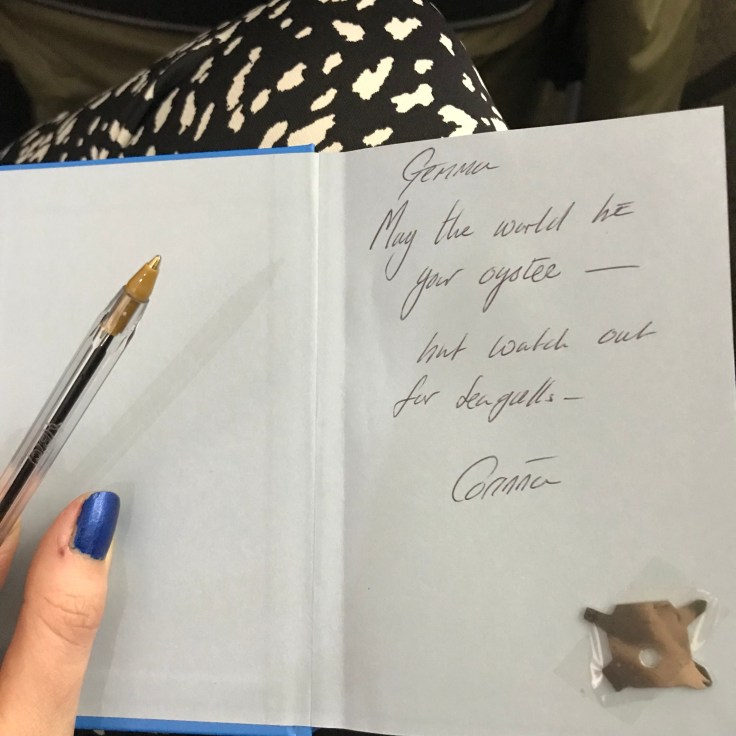 Gemma
May the world be
your oyster —
but watch out
for seagulls —
Corinna